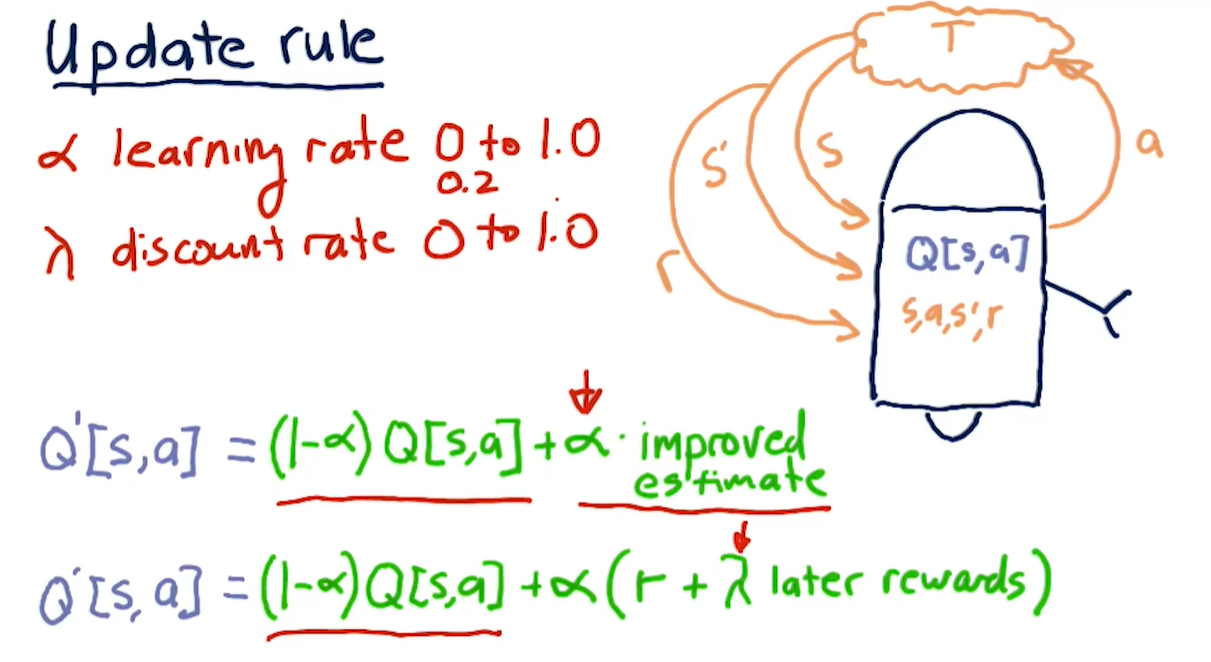 Update rule
α learning rate 0 to 1.0
0.2
λ discount rate 0 to 1.0
T
s'
s
a
r
Q[s,a]
s,a,s',r
Q'[s,a] = (1-α) Q[s,a] + α · improved
estimate
Q'[s,a] = (1-α) Q[s,a] + α (r + λ later rewards)